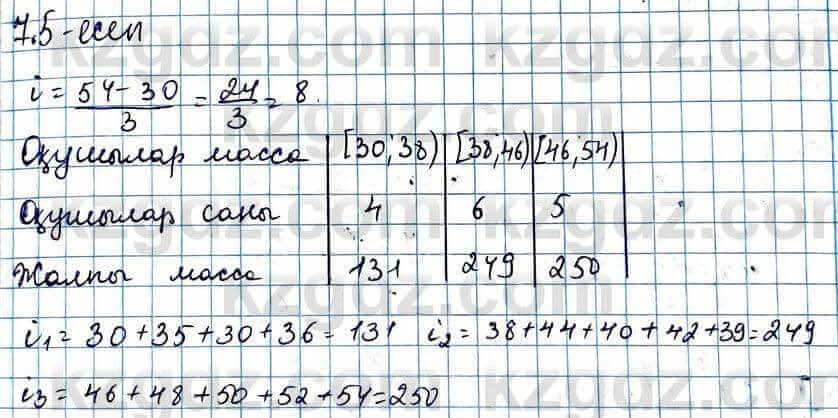 7.5-есеп
i = 54-30/3 = 24/3 = 8.
Оқушылар масса | [30; 38) | [38, 46) | [46, 54) |
Оқушылар саны | 4 | 6 | 5 |
Жалпы масса | 131 | 249 | 250 |
i₁ = 30+35+30+36 = 131 i₂ = 38+44+40+42+39=249
i₃ = 46+48+50+52+54=250
kzgdz.com